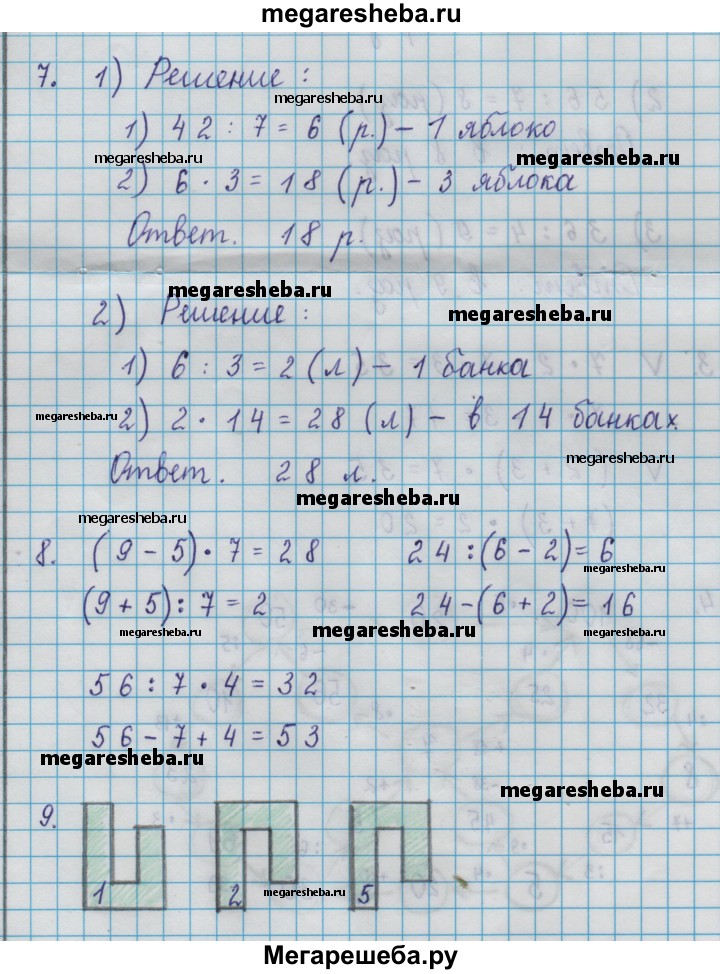 megaresheba.ru
7. 1) Решение:
megaresheba.ru
1) 42 : 7 = 6 (р.) – 1 яблоко
megaresheba.ru megaresheba.ru
2) 6 · 3 = 18 (р.) – 3 яблока
Ответ. 18 р.
megaresheba.ru
2) Решение: megaresheba.ru
1) 6 : 3 = 2 (л) – 1 банка
megaresheba.ru 2) 2 · 14 = 28 (л) – в 14 банках.
megaresheba.ru
Ответ. 28 л.
megaresheba.ru
megaresheba.ru
8. (9 – 5) · 7 = 28 24 : (6 – 2) = 6
megaresheba.ru
(9 + 5) : 7 = 2 24 – (6 + 2) = 16
megaresheba.ru megaresheba.ru megaresheba.ru
56 : 7 · 4 = 32
56 – 7 + 4 = 53
megaresheba.ru
megaresheba.ru
9.
1 2 megaresheba.ru 5
Мегарешеба.ру